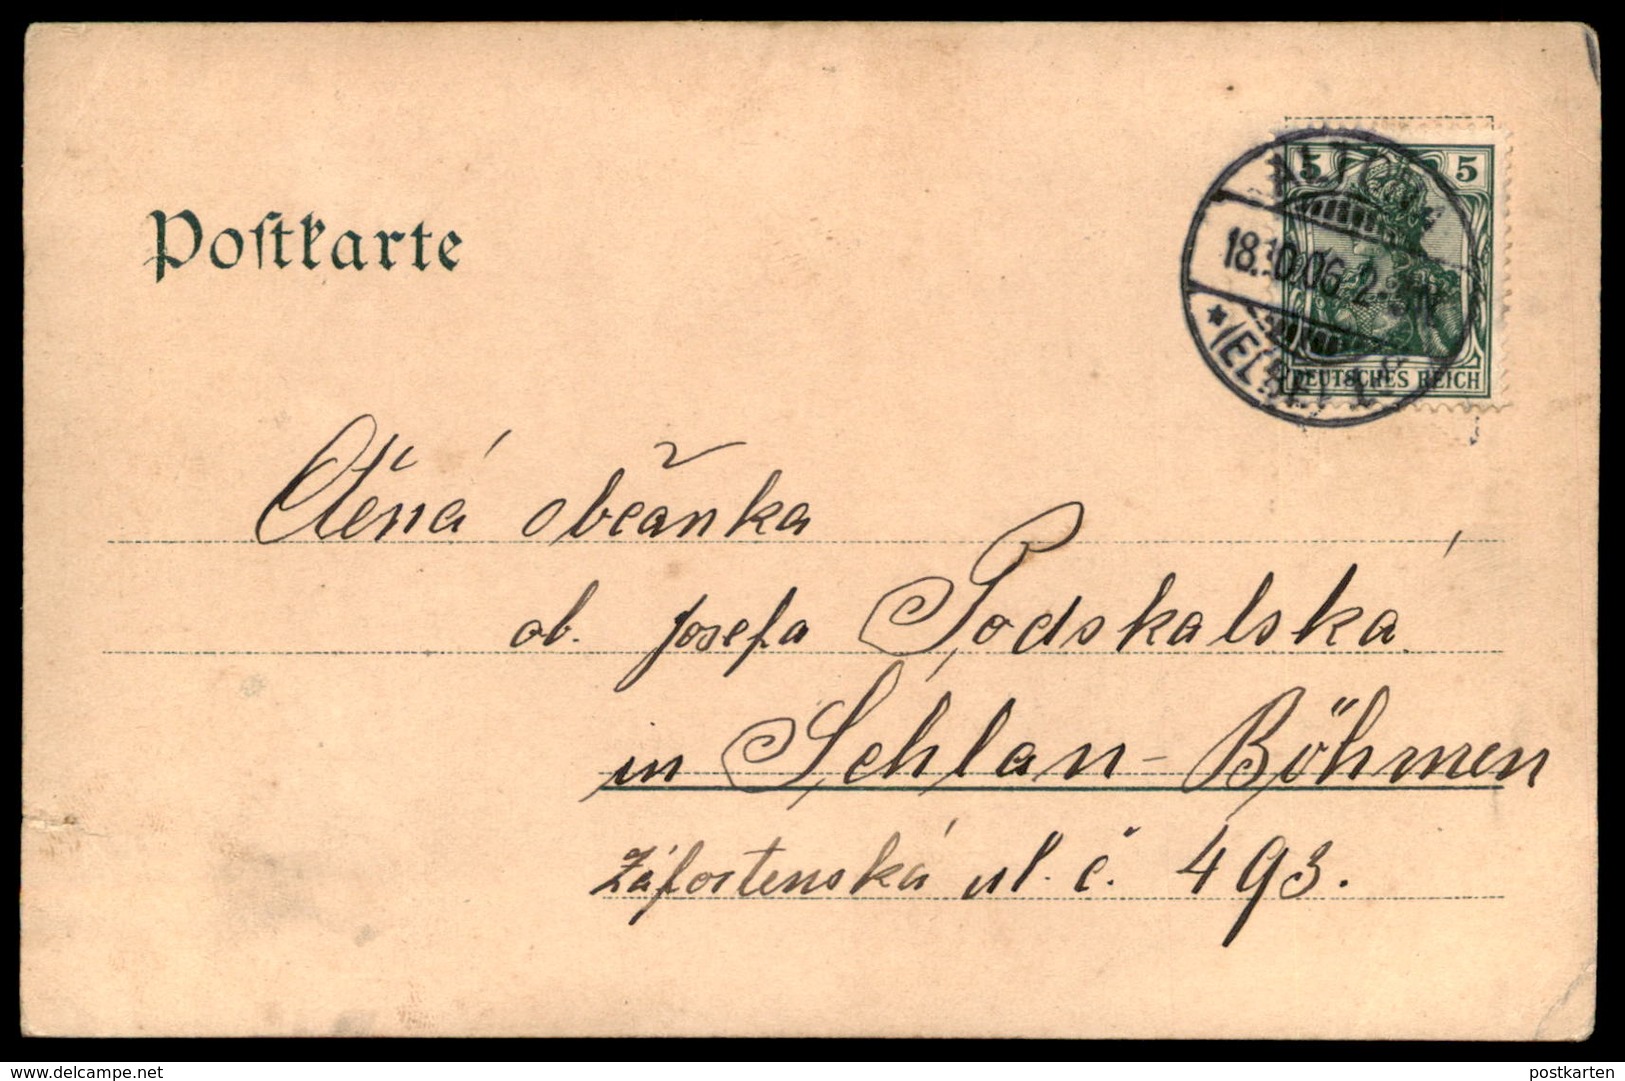 ALTONA
5 5
18.10.06. 2-3N
* (ELBE) 1
DEUTSCHES REICH
Postkarte
Ctěná občanka
ob. Josefa Podskalská
in Schlan-Böhmen
Záfortenská ul. č. 493.
www.delcampe.net
postkarten